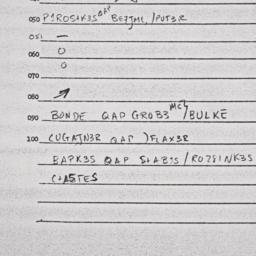 050 P1ROS+K3S QAP BEZJML /PUT3R
051 —
060 O
070 O
080 ↗
090 BUNDE QAP GROB3 MC3/BULKĒ
100 CUGATN3R QAP )FLAX3R
BAPK3S QAP S+AB3S / ROZEINK3S
C+A5TES